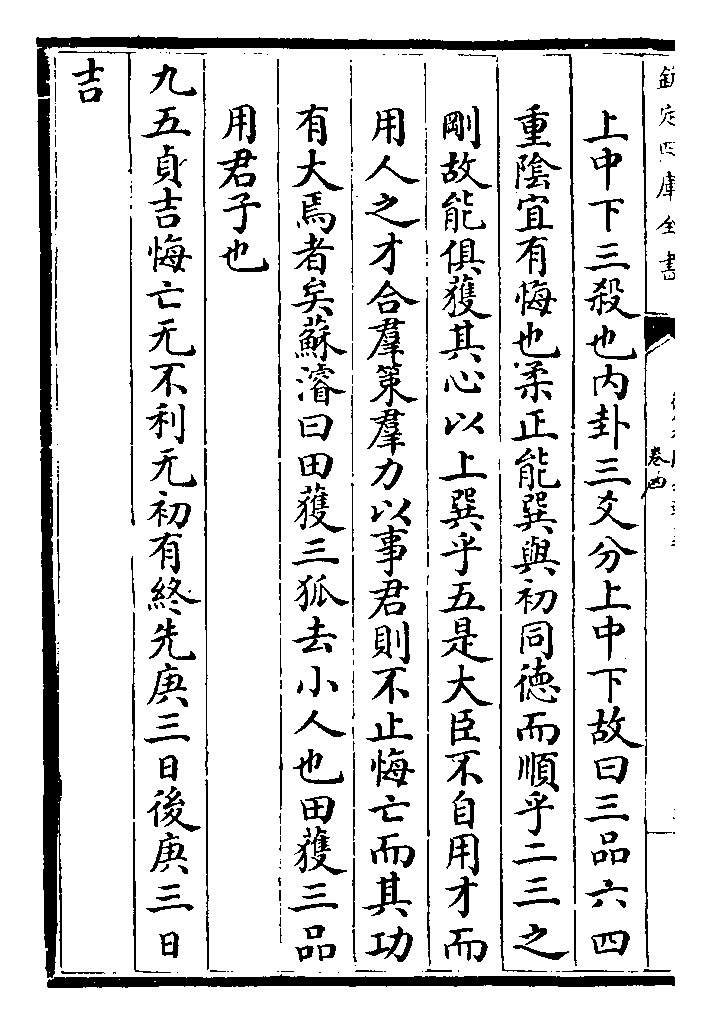 欽定四庫全書
卷四
上中下三殺也内卦三爻分上中下故曰三品六四
重陰宜有悔也柔正能巽與初同德而順乎二三之
剛故能俱獲其心以上巽乎五是大臣不自用才而
用人之才合羣策羣力以事君則不止悔亡而其功
有大焉者矣蘇濬曰田獲三狐去小人也田獲三品
用君子也
九五貞吉悔亡无不利无初有終先庚三日後庚三日
吉